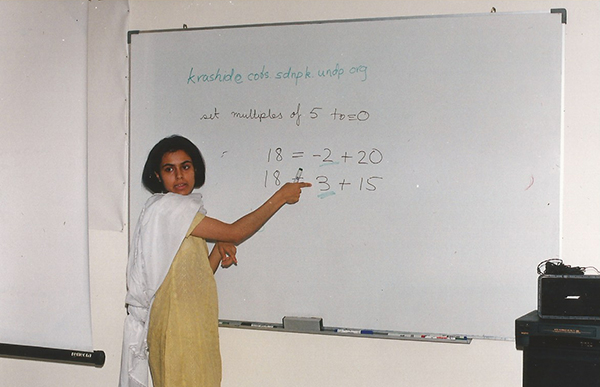 krashid@cots.sdnpk.undp.org
set multiples of 5 to=0
18 = -2 + 20
18 = 3 + 15